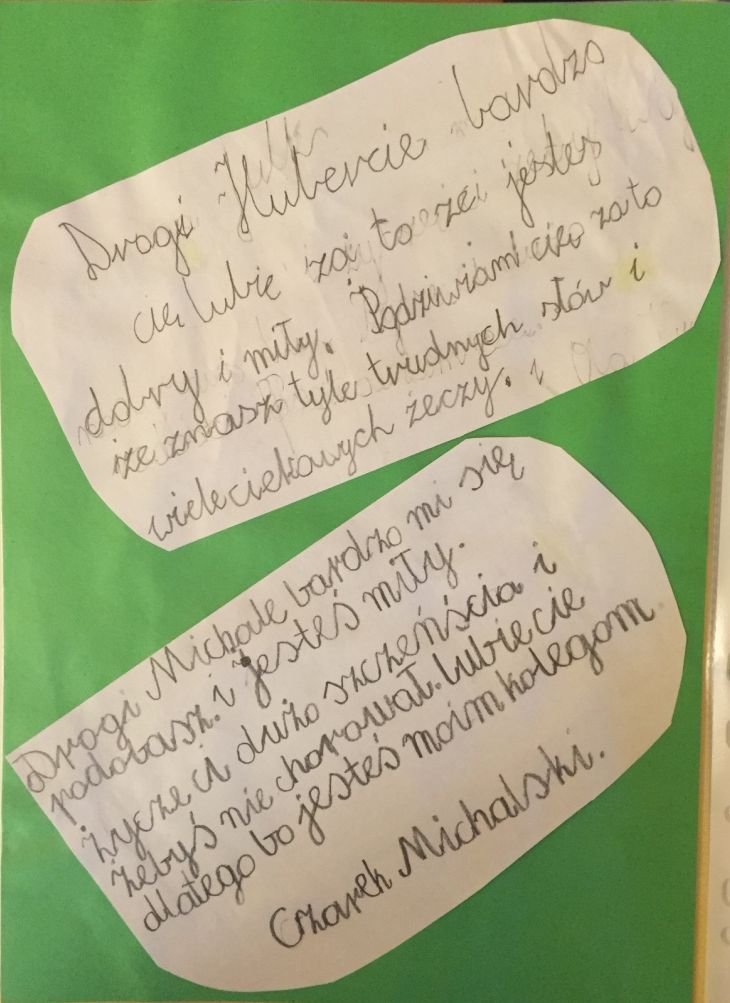 Drogi Hubercie bardzo
cię lubię za to że jesteś
dobry i miły. Podziwiam cię za to
że znasz tyle trudnych słów i
wiele ciekowych żeczy.
Drogi Michale bardzo mi się
podobasz. i jesteś miły.
życze ci dużo szczeńścia i
żebyś nie chorował. Lubię cie
dlatego bo jesteś moim kolegom
Czarek Michalski.